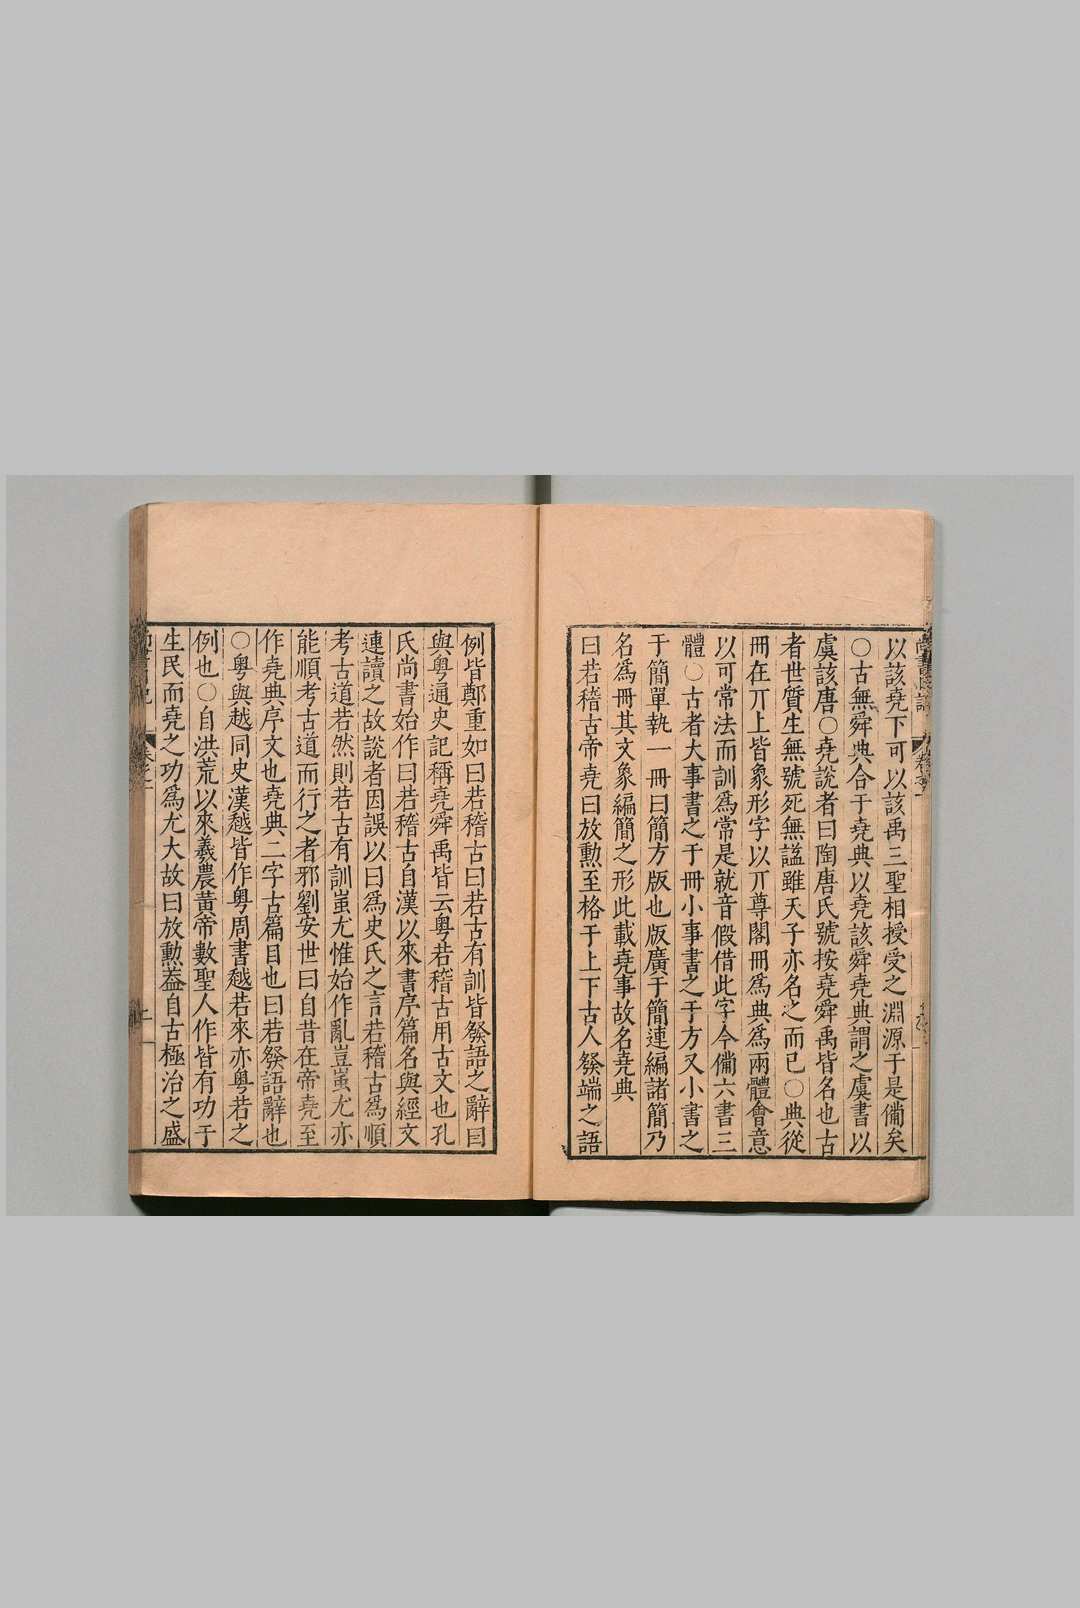 以該堯下可以該禹三聖相授受之淵源于是備矣
○古無舜典合于堯典以堯該舜堯典謂之虞書以
虞該唐○堯說者曰陶唐氏號按堯舜禹皆名也古
者世質生無號死無諡雖天子亦名之而已○典從
冊在丌上皆象形字以丌尊閣冊爲典爲兩體會意
以可常法而訓爲常是就音假借此字今備六書三
體○古者大事書之于冊小事書之于方又小書之
于簡單執一冊曰簡方版也版廣于簡連編諸簡乃
名爲冊其文象編簡之形此載堯事故名堯典
曰若稽古帝堯曰放勳至格于上下古人發端之語
例皆鄭重如曰若稽古曰若古有訓皆發語之辭曰
與粤通史記稱堯舜禹皆云粤若稽古用古文也孔
氏尚書始作曰若稽古自漢以來書序篇名與經文
連讀之故說者因誤以曰爲史氏之言若稽古爲順
考古道若然則若古有訓蚩尤惟始作亂豈蚩尤亦
能順考古道而行之者邪劉安世曰自昔在帝堯至
作堯典序文也堯典二字古篇目也曰若發語辭也
○粤與越同史漢越皆作粤周書越若來亦粤若之
例也○自洪荒以來羲農黃帝數聖人作皆有功于
生民而堯之功爲尤大故曰放勳葢自古極治之盛